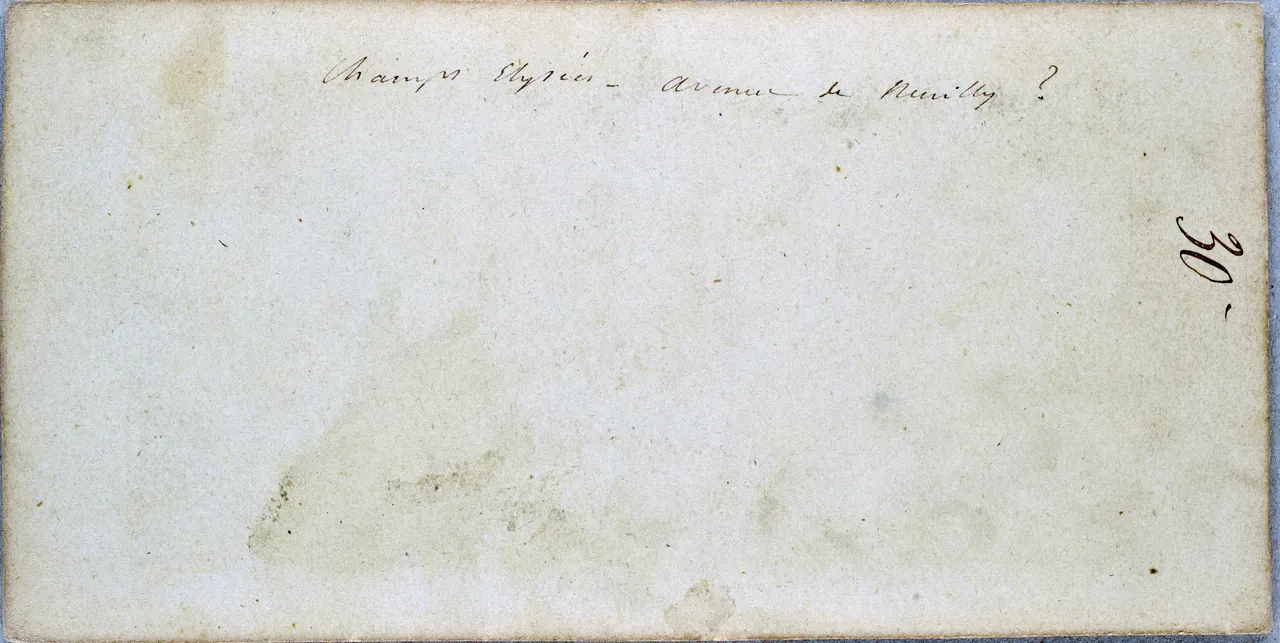 Champs Elysées - Avenue de Neuilly ?
30